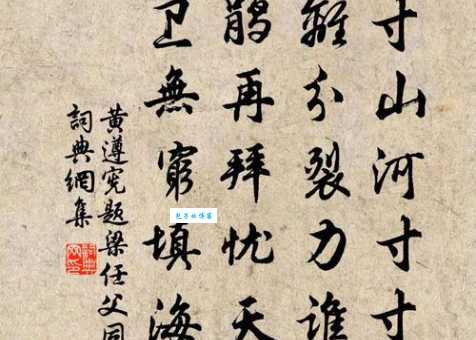 寸山河寸寸
離分裂力誰
鵑再拜忧天
卫無窮填海
黃遵宪題梁任父同
詞典網集